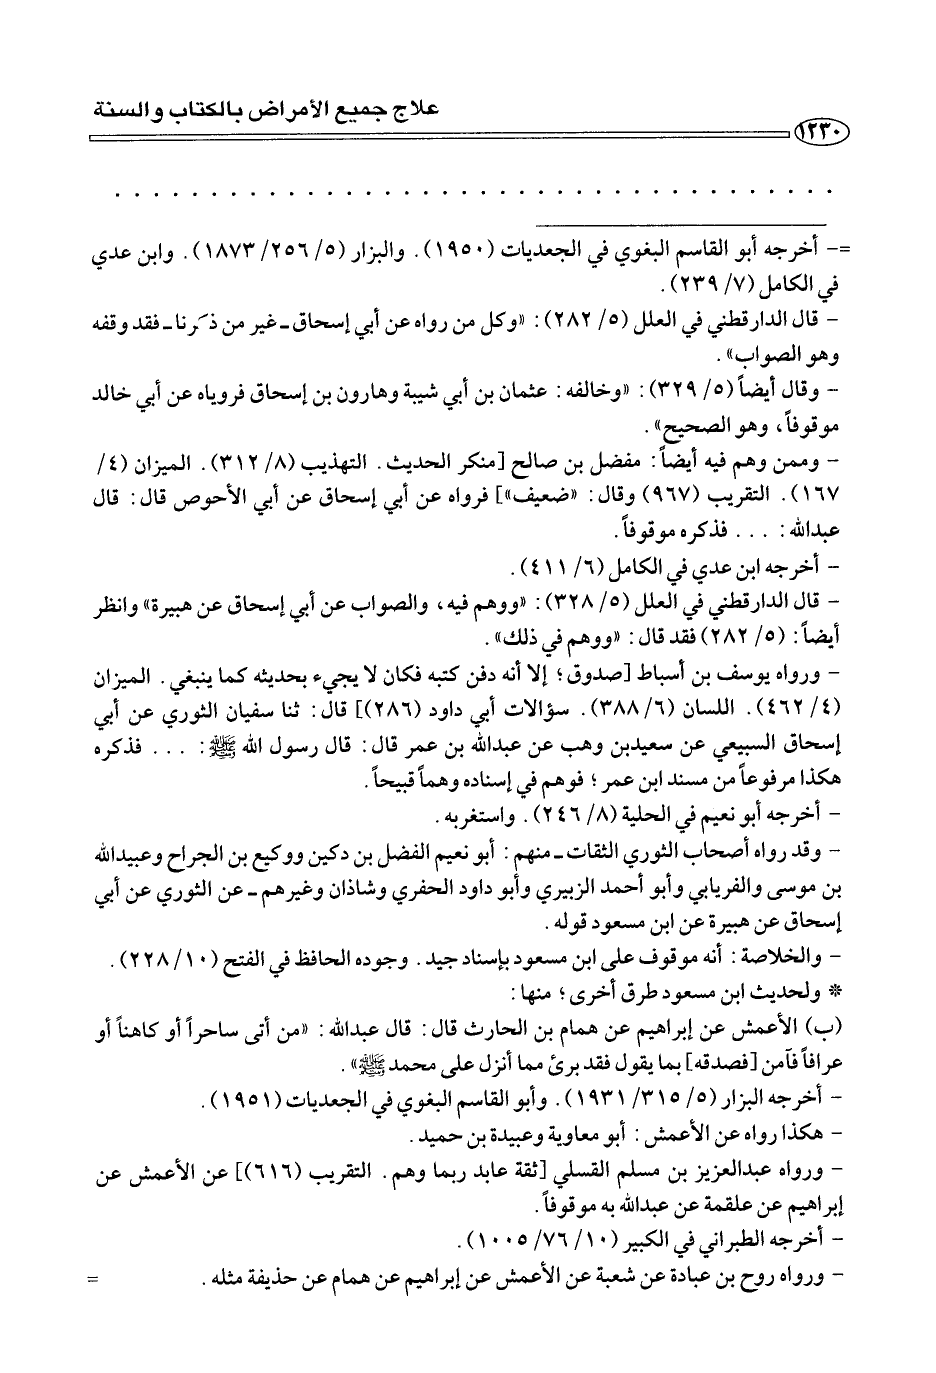 علاج جميع الأمراض بالكتاب والسنة
١٢٣٠
. . . . . . . . . . . . . . . . . . . . . . . . . . . . . . . . . . . . . . .
=- أخرجه أبو القاسم البغوي في الجعديات (١٩٥٠). والبزار (٥/ ٢٥٦/ ١٨٧٣). وابن عدي
في الكامل (٧/ ٢٣٩).
- قال الدارقطني في العلل (٥/ ٢٨٢): «وكل من رواه عن أبي إسحاق ـ غير من ذكرنا ـ فقد وقفه
وهو الصواب».
- وقال أيضاً (٥/ ٣٢٩): «وخالفه: عثمان بن أبي شيبة وهارون بن إسحاق فروياه عن أبي خالد
موقوفاً، وهو الصحيح».
- وممن وهم فيه أيضاً: مفضل بن صالح [منكر الحديث. التهذيب (٨/ ٣١٢). الميزان (٤/
١٦٧). التقريب (٩٦٧) وقال: «ضعيف»] فرواه عن أبي إسحاق عن أبي الأحوص قال: قال
عبدالله: ... فذكره موقوفاً.
- أخرجه ابن عدي في الكامل (٦/ ٤١١).
- قال الدارقطني في العلل (٥/ ٣٢٨): «ووهم فيه، والصواب عن أبي إسحاق عن هبيرة» وانظر
أيضاً: (٥/ ٢٨٢) فقد قال: «ووهم في ذلك».
- ورواه يوسف بن أسباط [صدوق؛ إلا أنه دفن كتبه فكان لا يجيء بحديثه كما ينبغي. الميزان
(٤/ ٤٦٢). اللسان (٦/ ٣٨٨). سؤالات أبي داود (٢٨٦)] قال: ثنا سفيان الثوري عن أبي
إسحاق السبيعي عن سعيدبن وهب عن عبدالله بن عمر قال: قال رسول الله ﷺ: ... فذكره
هكذا مرفوعاً من مسند ابن عمر؛ فوهم في إسناده وهماً قبيحاً.
- أخرجه أبو نعيم في الحلية (٨/ ٢٤٦). واستغربه.
- وقد رواه أصحاب الثوري الثقات ـ منهم: أبو نعيم الفضل بن دكين ووكيع بن الجراح وعبيدالله
بن موسى والفريابي وأبو أحمد الزبيري وأبو داود الحفري وشاذان وغيرهم ـ عن الثوري عن أبي
إسحاق عن هبيرة عن ابن مسعود قوله.
- والخلاصة: أنه موقوف على ابن مسعود بإسناد جيد. وجوده الحافظ في الفتح (١٠/ ٢٢٨).
* ولحديث ابن مسعود طرق أخرى؛ منها:
(ب) الأعمش عن إبراهيم عن همام بن الحارث قال: قال عبدالله: «من أتى ساحراً أو كاهناً أو
عرافاً فآمن [فصدقه] بما يقول فقد برئ مما أنزل على محمد ﷺ».
- أخرجه البزار (٥/ ٣١٥/ ١٩٣١). وأبو القاسم البغوي في الجعديات (١٩٥١).
- هكذا رواه عن الأعمش: أبو معاوية وعبيدة بن حميد.
- ورواه عبدالعزيز بن مسلم القسلي [ثقة عابد ربما وهم. التقريب (٦١٦)] عن الأعمش عن
إبراهيم عن علقمة عن عبدالله به موقوفاً.
- أخرجه الطبراني في الكبير (١٠/ ٧٦/ ١٠٠٥).
- ورواه روح بن عبادة عن شعبة عن الأعمش عن إبراهيم عن همام عن حذيفة مثله. =